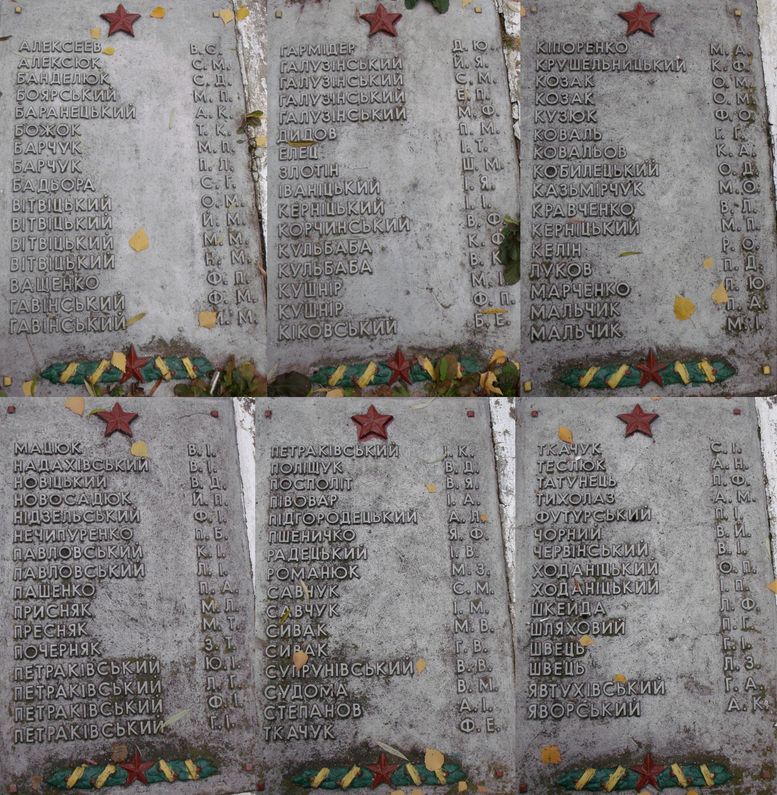 АЛЕКСЕЄВ В. С.
АЛЕКСЮК С. М.
БАНДЕЛЮК С. Д.
БОЯРСЬКИЙ М. П.
БАРАНЕЦЬКИЙ А. К.
БОЖОК Т. К.
БАРЧУК М. П.
БАРЧУК П. Л.
БАДЬОРА С. Г.
ВІТВІЦЬКИЙ О. М.
ВІТВІЦЬКИЙ Й. М.
ВІТВІЦЬКИЙ М. М.
ВІТВІЦЬКИЙ М.
ВАЩЕНКО Ф. П.
ГАВІНСЬКИЙ Ф. М.
ГАВІНСЬКИЙ М.
ГАРМІДЕР Д. Ю.
ГАЛУЗІНСЬКИЙ Й. Я.
ГАЛУЗІНСЬКИЙ С. М.
ГАЛУЗІНСЬКИЙ Е. П.
ГАЛУЗІНСЬКИЙ М. Ф.
ДИДОВ П. М.
ЕЛЕЦ І. Т.
ЗЛОТІН Ш. М.
ІВАНІЦЬКИЙ І. Я.
КЕРНІЦЬКИЙ І. І.
КОРЧИНСЬКИЙ В. Ф.
КУЛЬБАБА К. Ф.
КУЛЬБАБА В. К.
КУШНІР М. І.
КУШНІР Ф. П.
КІКОВСЬКИЙ Б. Е.
КІПОРЕНКО М. А.
КРУШЕЛЬНИЦЬКИЙ К. Ф.
КОЗАК О. М.
КОЗАК О. М.
КУЗЮК Ф. О.
КОВАЛЬ Г. Г.
КОВАЛЬОВ К. А.
КОБИЛЕЦЬКИЙ О. Д.
КАЗЬМІРЧУК М. О.
КРАВЧЕНКО В. Л.
КЕРНІЦЬКИЙ М. П.
КЕЛІН Р. О.
ЛУКОВ П. Д.
МАРЧЕНКО П. Ю.
МАЛЬЧИК П. А.
МАЛЬЧИК М. І.
МАЦЮК В. І.
НАДАХІВСЬКИЙ В. І.
НОВІЦЬКИЙ В. Д.
НОВОСАДЮК Й. П.
НІДЗЕЛЬСЬКИЙ Ф. І.
НЕЧИПУРЕНКО П. Б.
ПАВЛОВСЬКИЙ К. І.
ПАВЛОВСЬКИЙ Л. І.
ПАШЕНКО П. А.
ПРИСНЯК М. Л.
ПРЕСНЯК М. Т.
ПОЧЕРНЯК З. Т.
ПЕТРАКІВСЬКИЙ Ю. І.
ПЕТРАКІВСЬКИЙ Л. Г.
ПЕТРАКІВСЬКИЙ Ф. І.
ПЕТРАКІВСЬКИЙ Г. І.
ПЕТРАКІВСЬКИЙ І. К.
ПОЛІЩУК В. Д.
ПОСПОЛІТ В. Я.
ПІВОВАР І. А.
ПІДГОРОДЕЦЬКИЙ А. Л.
ПШЕНИЧКО Я. Ф.
РАДЕЦЬКИЙ І. В.
РОМАНЮК М. З.
САВЧУК С. М.
САВЧУК І. М.
СИВАК М. В.
СИВАК Г. В.
СУПРУНІВСЬКИЙ В. В.
СУДОМА В. М.
СТЕПАНОВ А. І.
ТКАЧУК Ф. Е.
ТКАЧУК С. І.
ТЕСЛЮК А. Н.
ТАТУНЕЦЬ П. Ф.
ТИХОЛАЗ А. М.
ФУТУРСЬКИЙ П. І.
ЧОРНИЙ В. Й.
ЧЕРВІНСЬКИЙ В. І.
ХОДАНІЦЬКИЙ О. П.
ХОДАНІЦЬКИЙ П.
ШКЕЙДА Л. Ф.
ШЛЯХОВИЙ П. Г.
ШВЕЦЬ Г. І.
ШВЕЦЬ Л. З.
ЯВТУХІВСЬКИЙ Г. А.
ЯВОРСЬКИЙ А. К.